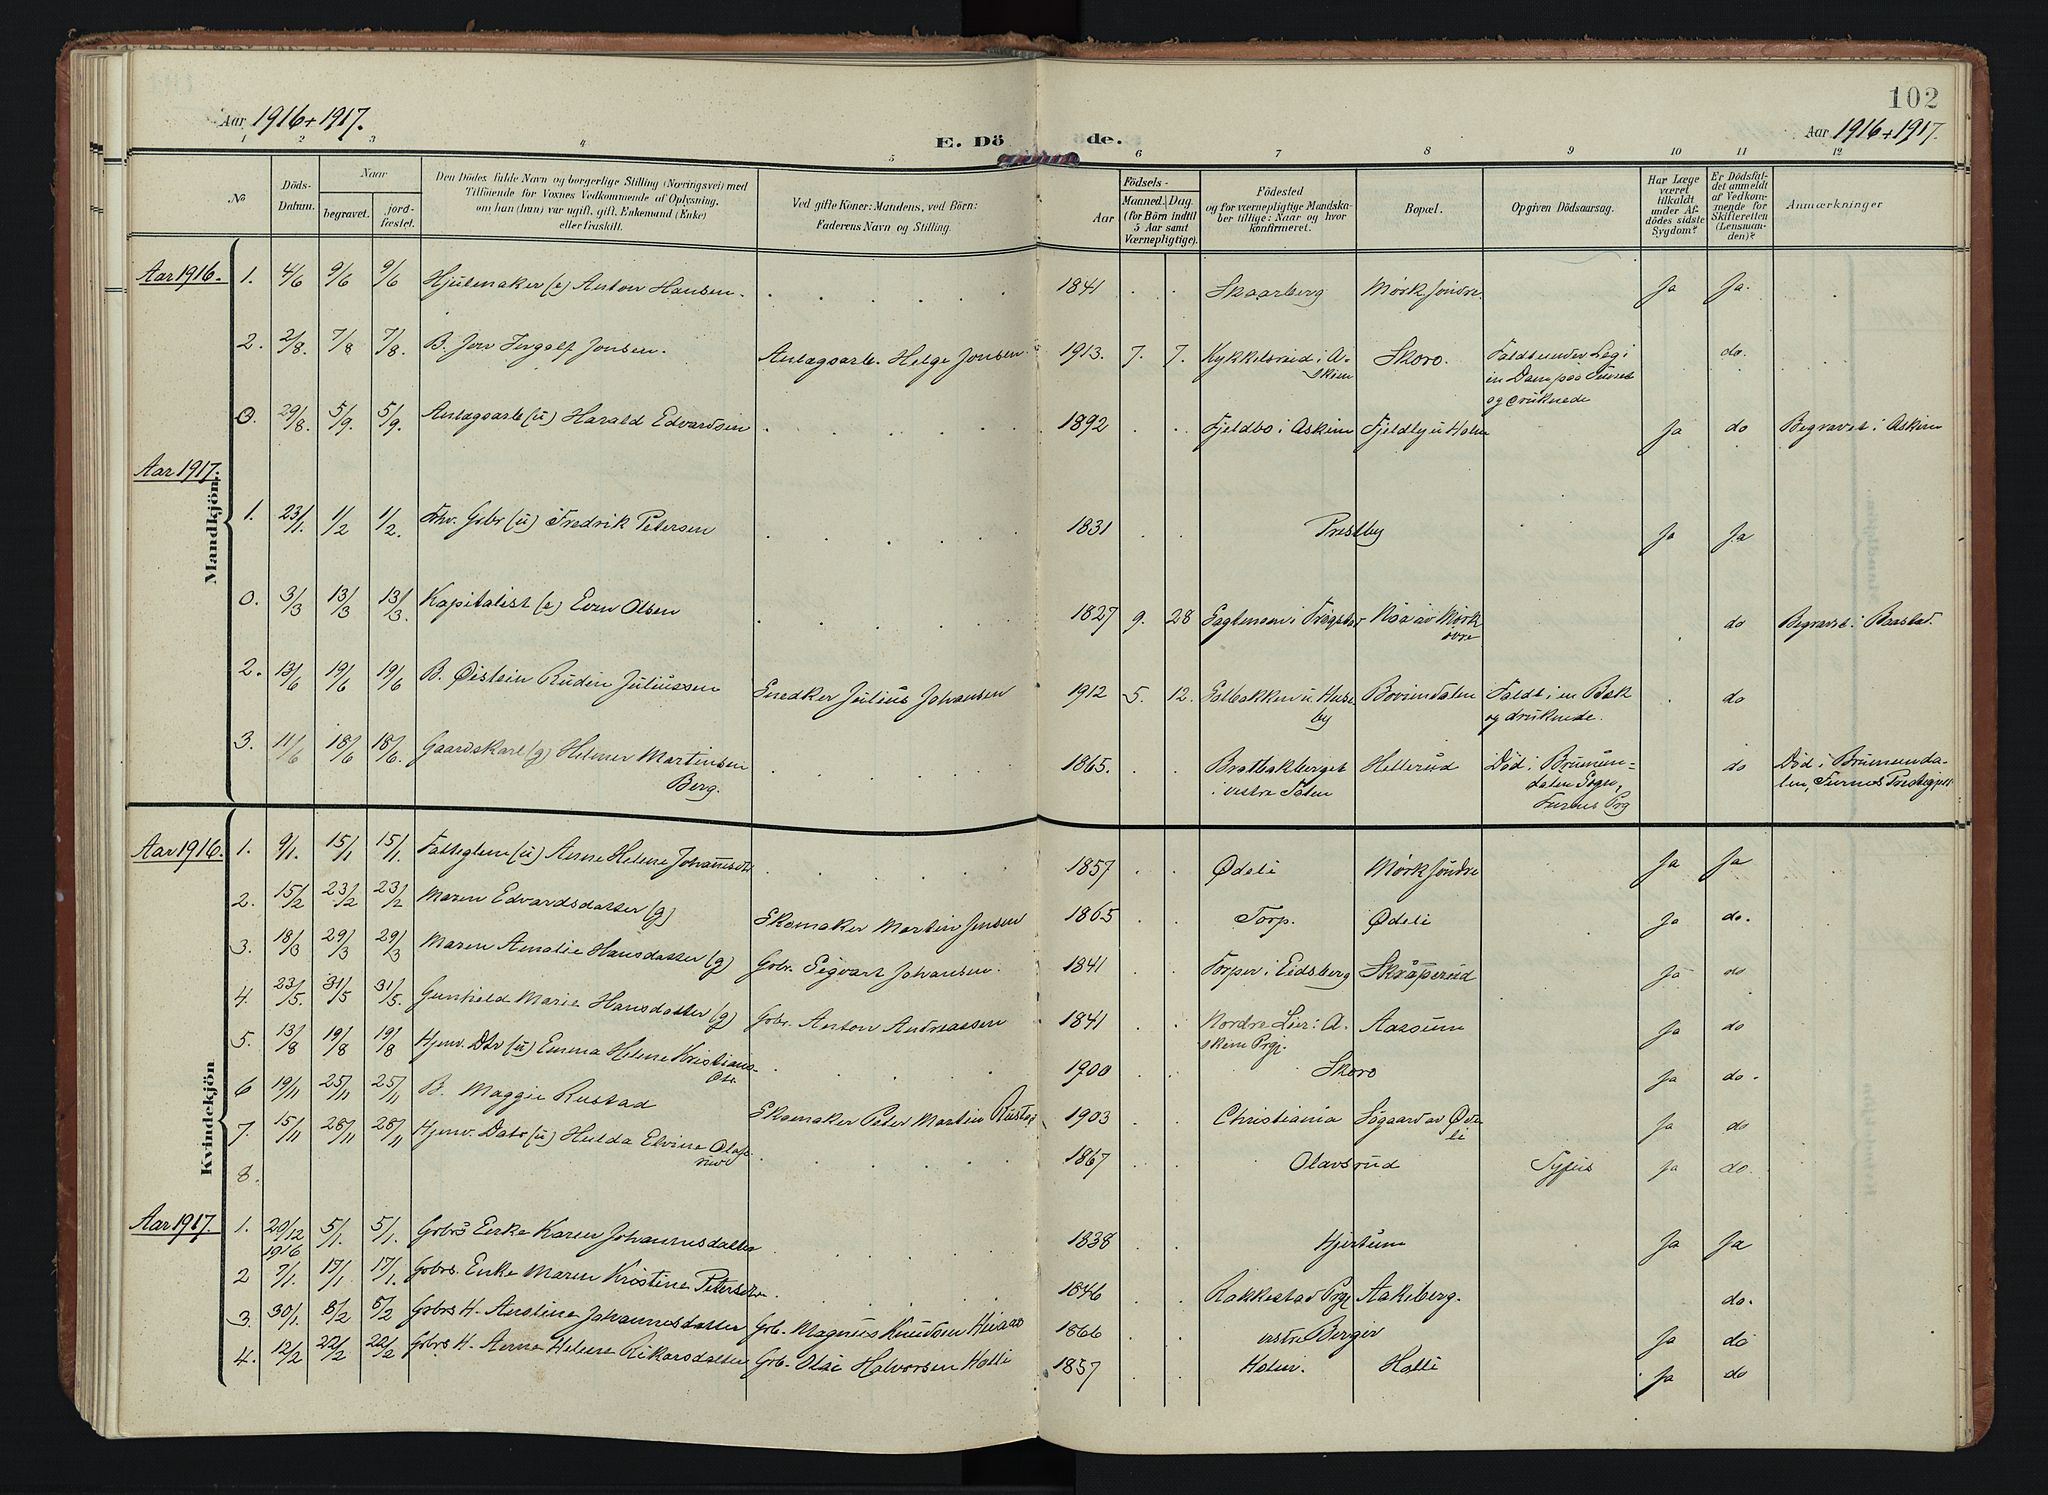 102
Aar 1916+1917.
E. Dö de.
Aar 1916+1917.
1 2 3 4 5 6 7 8 9 10 11 12
No
Döds-Datum.
Naar
begravet.
jordfæstet.
Den Dödes fulde Navn og borgerlige Stilling (Næringsvei) med
Tilföiende for Voxnes Vedkommende af Oplysning,
om han (hun) var ugift, gift, Enkemand (Enke)
eller fraskilt.
Ved gifte Koner: Mandens, ved Börn:
Faderens Navn og Stilling.
Födsels-
Aar
Maaned. Dag.
(for Börn indtil
5 Aar samt
Værnepligtige).
Födested
og for værnepligtige Mandska-
ber tillige: Naar og hvor
konfirmeret.
Bopæl.
Opgiven Dödsaarsag.
Har Læge
været
tilkaldt
under Af-
dödes sidste
Sygdom?
Er Dödsfal-
det anmeldt
af Vedkom-
mende for
Skifteretten
(Lensman-
den)?
Anmærkninger
Mandkjön.
Aar 1916. 1. 4/6 9/6 9/6 Hjulmaker (e) Anton Hansen. 1841 Skaarberg Mörk söndre. Ja Ja.
2. 2/8. 7/8 7/8. B. Jon Ingolf Jonsen. Anlægsarb. Helge Jonsen. 1913. 7. 7. Kykkelsrud i A- Skoro. do.
skim
og druknede
0. 29/8. 5/9. 5/9. Anlægsarb (u) Harald Edvardsen 1892 Fjeldbo i Askim Fjeldby u Holm Ja do Begravet i Askim
Aar 1917.
1. 23/1. 1/2 1/2. Fhv. Gbr (u) Fredrik Petersen 1831 Prestby Ja Ja
0. 3/3 13/3 13/3. Kapitalist (e) Even Olsen 1827 9. 28 i Trögstad av Mörk do Begravet i Baastad.
övre
2. 13/6 19/6 19/6 B. Öistein Rudin Juliussen Snedker Julius Johansen 1912 5. 12. u. Huse- Faldt i en Bæk do
by og druknede.
3. 11/6 18/6 18/6. Gaardskarl (g) Helmer Martinsen 1865. Bratbakberget Hellerud Död i Brumun- do Död i Brumunda-
Berg. i vestre Toten dalen Sogn, len, Furnes Prestegjeld
Furnes Prg
Kvindekjön
Aar 1916. 1. 9/1. 15/1 15/1. Fattiglem (u) Anne Helene Johannesdtr 1857 Ödeli Mörk söndre Ja Ja
2. 15/2 23/2 23/2 Maren Edvardsdatter (g) Skomaker Martin Jensen 1865 Torp. Ödeli Ja do.
3. 18/3 29/3 29/3 Maren Amalie Hansdatter (g) Gbr. Sigvart Johansen. 1841 Torper i Eidsberg Skråperud Ja do
4. 23/5 31/5 31/5. Gunhild Marie Hansdatter (g) Gbr. Anton Andreassen 1841 Nordre Lier i A- Aassum Ja do
skim Prgj.
5. 13/8 19/8 19/8 Hjemv. Dtr (u) Emma Helene Kristians- 1900 Skoro Ja do.
dtr
6 19/11 25/11 25/11 B. Maggie Rustad Skomaker Peter Martin Rustad 1903 Christiania Søgaard av Öde- Ja do
li
7. 15/11 28/11 28/11 Hjemv. Datr (u) Hulda Elvine Olafs- 1867 Olavsrud Tyfus Ja do.
rud
8.
Aar 1917. 1. 20/12 5/1. 5/1. Gbrs Enke Karen Johannesdatter 1838 Hjertum Ja Ja
1916
2 7/1. 17/1 17/1. Gbrs. Enke Maren Kristine Petersdtr. 1846 Rakkestad Prgj Aakeberg. do.
3. 30/1. 8/2 8/2 Gbrs H. Anstine Johannesdatter Gbr. Magnus Knudsen 1866 östre Berger Ja do
4. 12/2 22/2 22/2 Gbrs H. Anne Helene Rikardsdatter Gbr. Olai Halvorsen Holli 1857 Holm. Holli Ja do